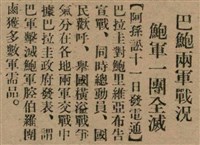 巴鮑兩軍戰况
鮑軍一團全滅
【阿孫訟十一日發電通】
巴拉圭對鮑里維亞布告
宣戰、同時總動員、國
民歡呼、舉國橫溢戰爭
氣分在各地兩軍交戰中
據巴拉圭政府發表、謂
巴軍擊滅鮑軍胶伯羅團
鹵獲多數軍需品。